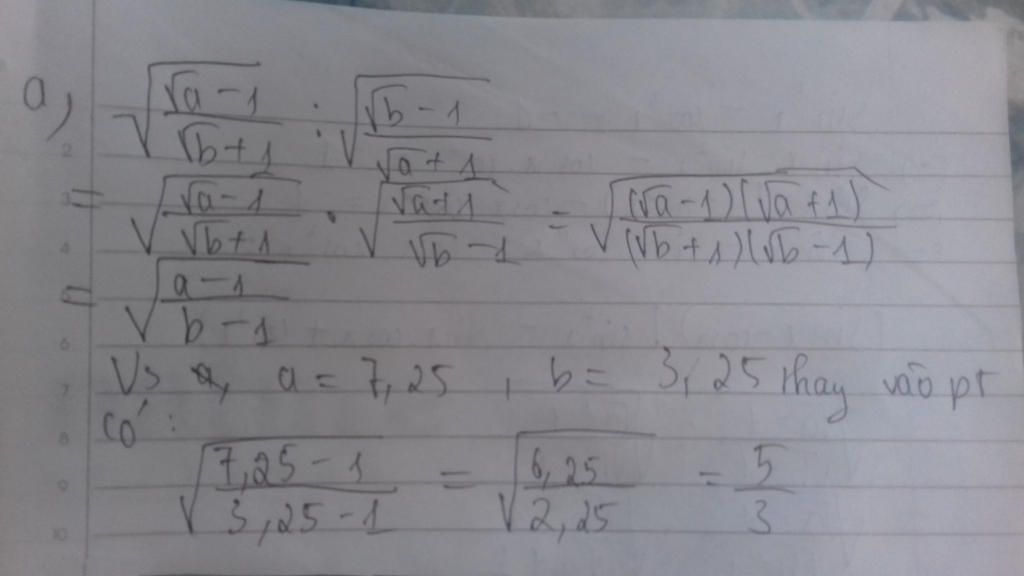 a, √((√a - 1)/(√b + 1)) : √((√b - 1)/(√a + 1))
= √((√a - 1)/(√b + 1)) . √((√a + 1)/(√b - 1)) = √(((√a - 1)(√a + 1))/((√b + 1)(√b - 1)))
= √((a - 1)/(b - 1))
Vs a, a = 7,25 , b = 3,25 thay vào pt
có:
√((7,25 - 1)/(3,25 - 1)) = √(6,25/2,25) = 5/3
2
3
4
5
6
7
8
9
10